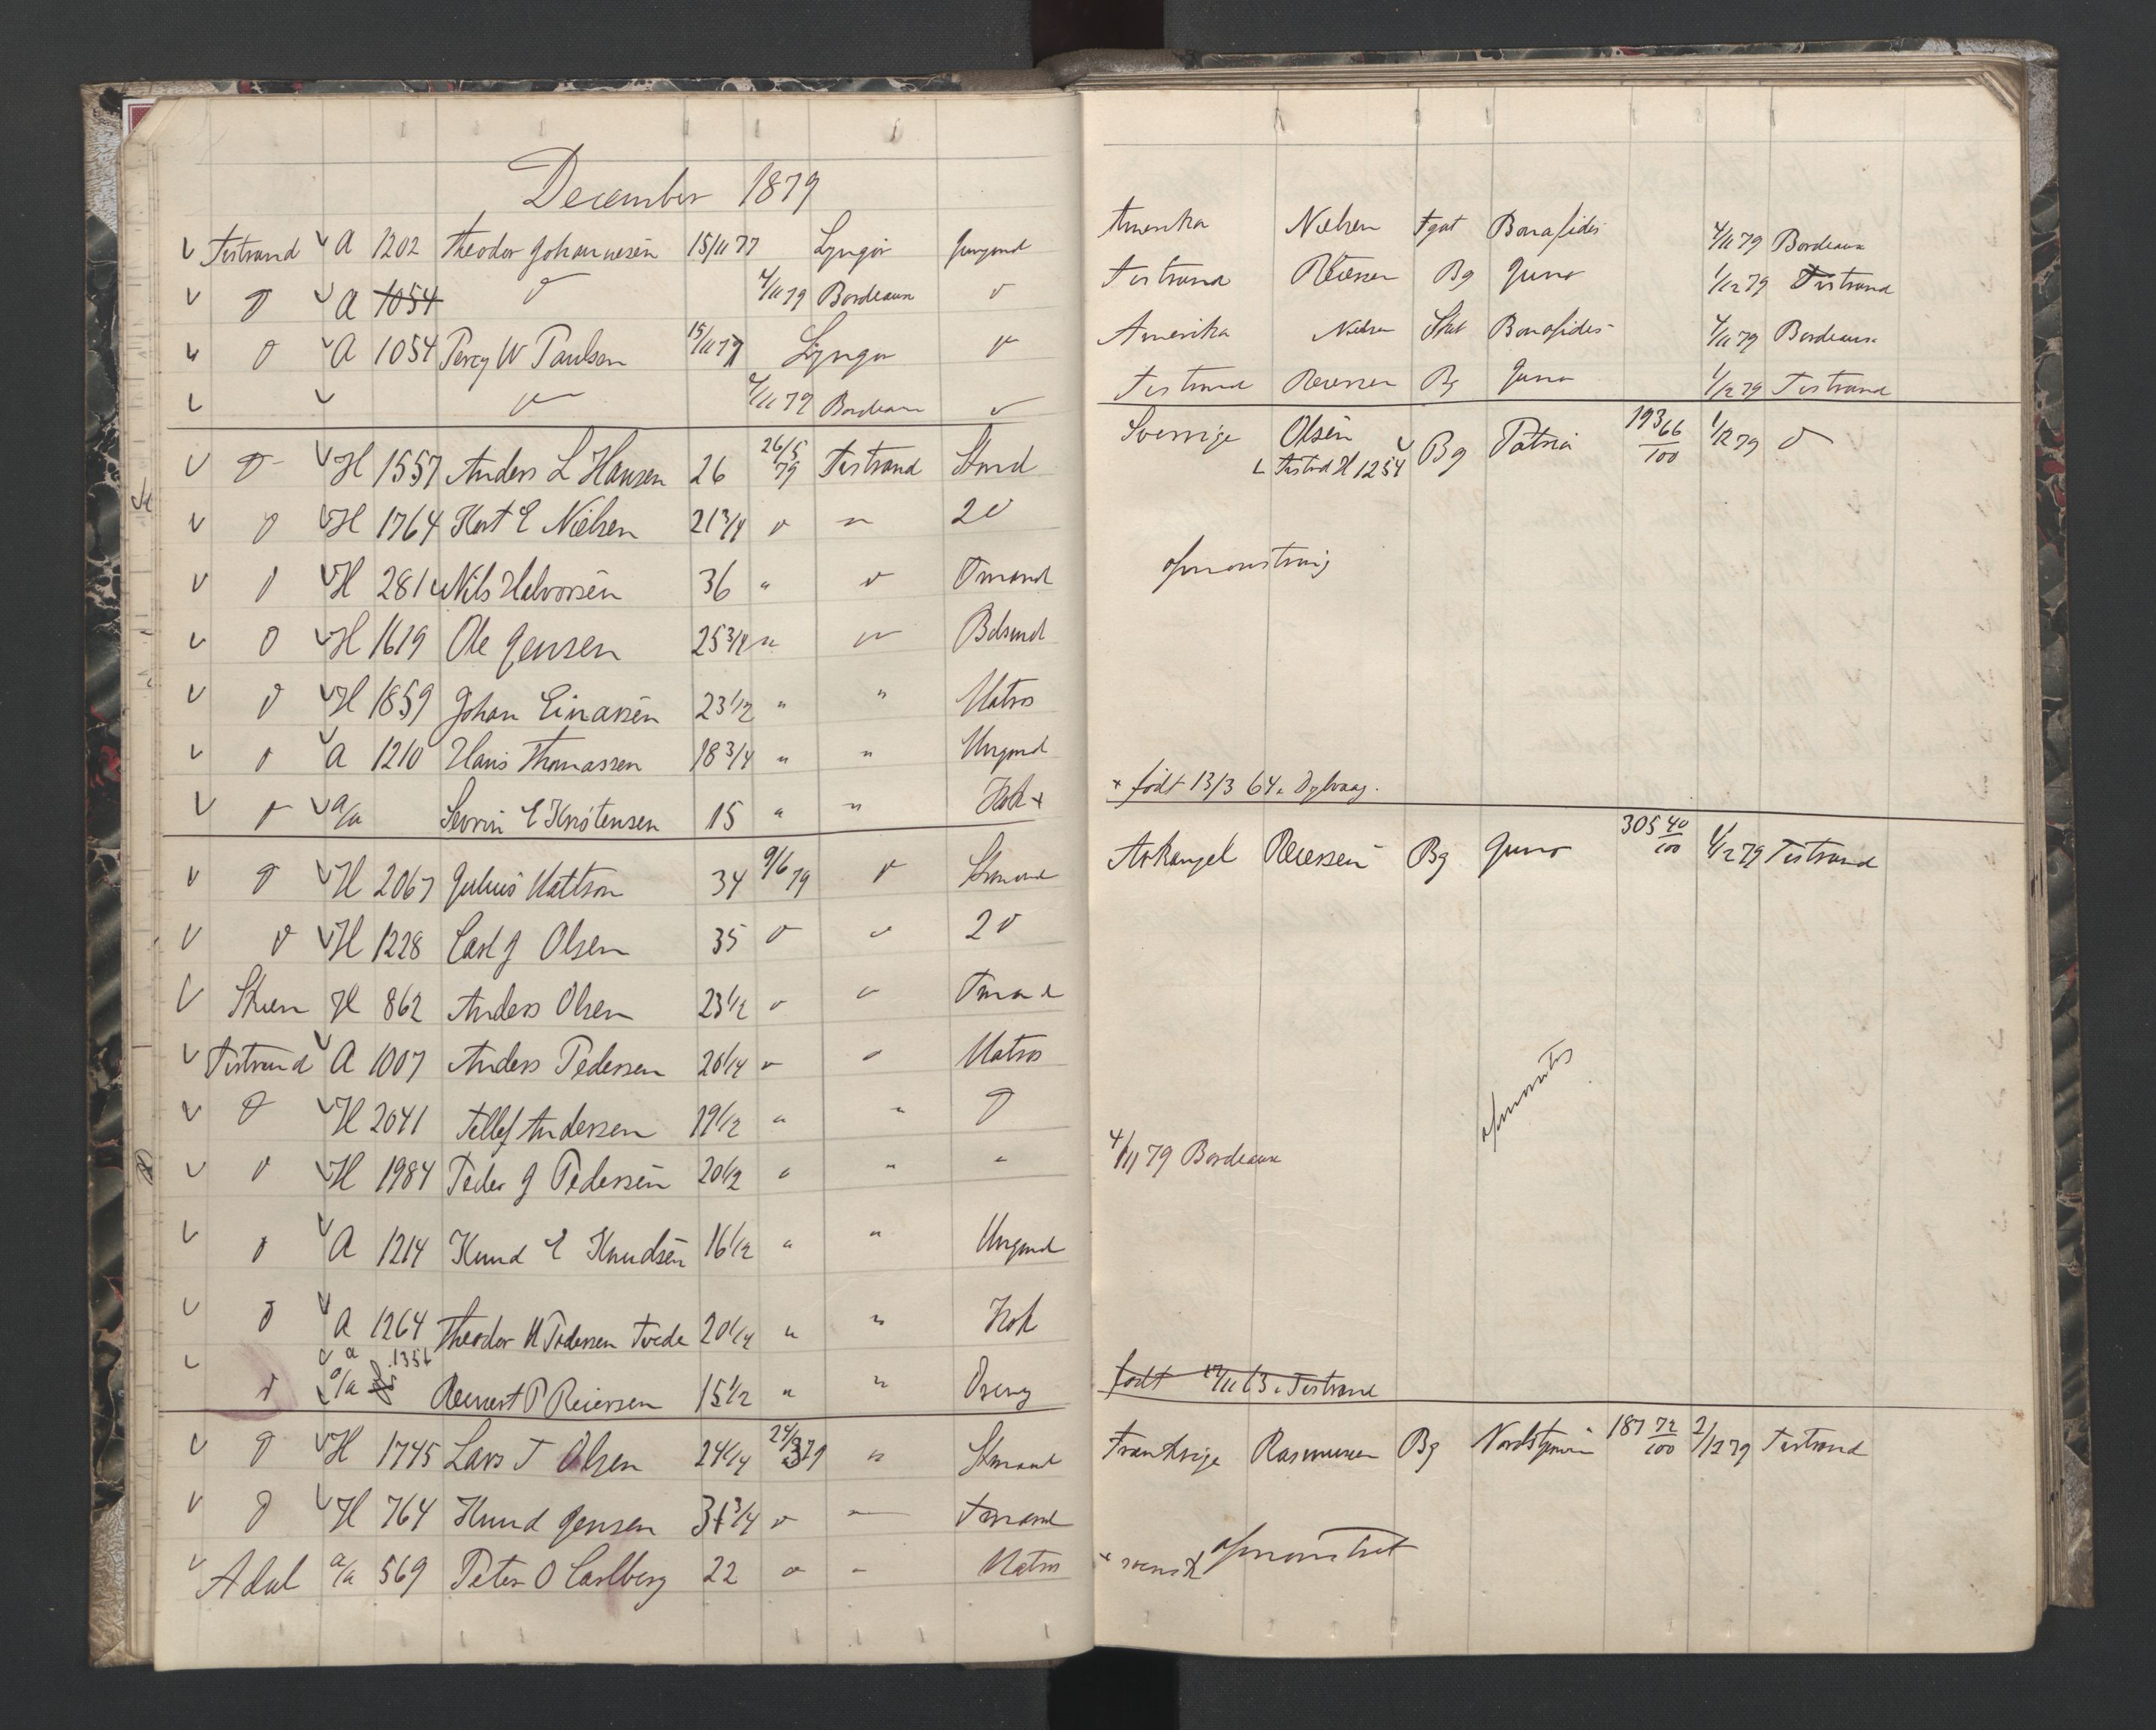 December 1879
Tvstrand A 1202 Theodor Johannesen 15/11 77 Lyngør Jungmd Amerika Nielsen Skut Bonafides 4/11 79 Bordeaux
" A 1054 " 4/11 79 Bordeaux " Tvstrand Reiersen Bg Juno 1/12 79 Tvstrand
" A 1054 Percy W Paulsen 15/11 77 Lyngør " Amerika Nielsen Skut Bonafides 4/11 79 Bordeaux
" 4/11 79 Bordeaux " Tvstrand Reiersen Bg Juno 1/12 79 Tvstrand
" H 1557 Anders L Hansen 26 26/5 79 Tvstrand Stmd Sverrige Olsen Bg Patria 193 66/100 1/12 79 "
Tvstrd H 1254
" H 1764 Kort E Nielsen 21 3/4 " " 2 "
" H 281 Nils Halvorsen 36 " " Tmand afmønstring
" H 1619 Ole Jensen 25 3/4 " " Bdsmd
" H 1859 Johan Einarsen 23 1/2 " " Matros
" A 1210 Hans Thomassen 18 3/4 " " Ungmd
" a/a Severin E Kristensen 15 " " Kok + + født 13/3 64.
" H 2067 Julius Mattson 34 9/6 79 " Stmand Arkangel Reiersen Bg Juno 305 40/100 1/12 79 Tvstrand
" H 1228 Carl J Olsen 35 " " 2 "
Skien H 862 Anders Olsen 23 1/2 " " Tmand
Tvstrand A 1007 Anders Pedersen 20 1/4 " " Matros
" H 2041 Tellef Andersen 19 1/2 " " " afmønstr
" H 1984 Peder J Pedersen 20 1/2 " " " 4/11 79 Bordeaux
" A 1214 Knud E Knudsen 16 1/2 " " Ungmd
" A 1264 Theodor M Pedersen Tvede 20 1/4 " " Kok
a 1356
" a/a Reinert P Reiersen 15 1/2 " " Dreng født 17/11 63. Tvstrand
" H 1745 Lars T Olsen 24 1/4 24/3 79 " Stmand Frankrige Rasmussen Bg 187 72/100 2/12 79 Tvstrand
" H 764 Knud Jensen 31 3/4 " " Tmand
Adal a/a 569 Peter O Carlberg 22 " " Matros + svensk afmønstret